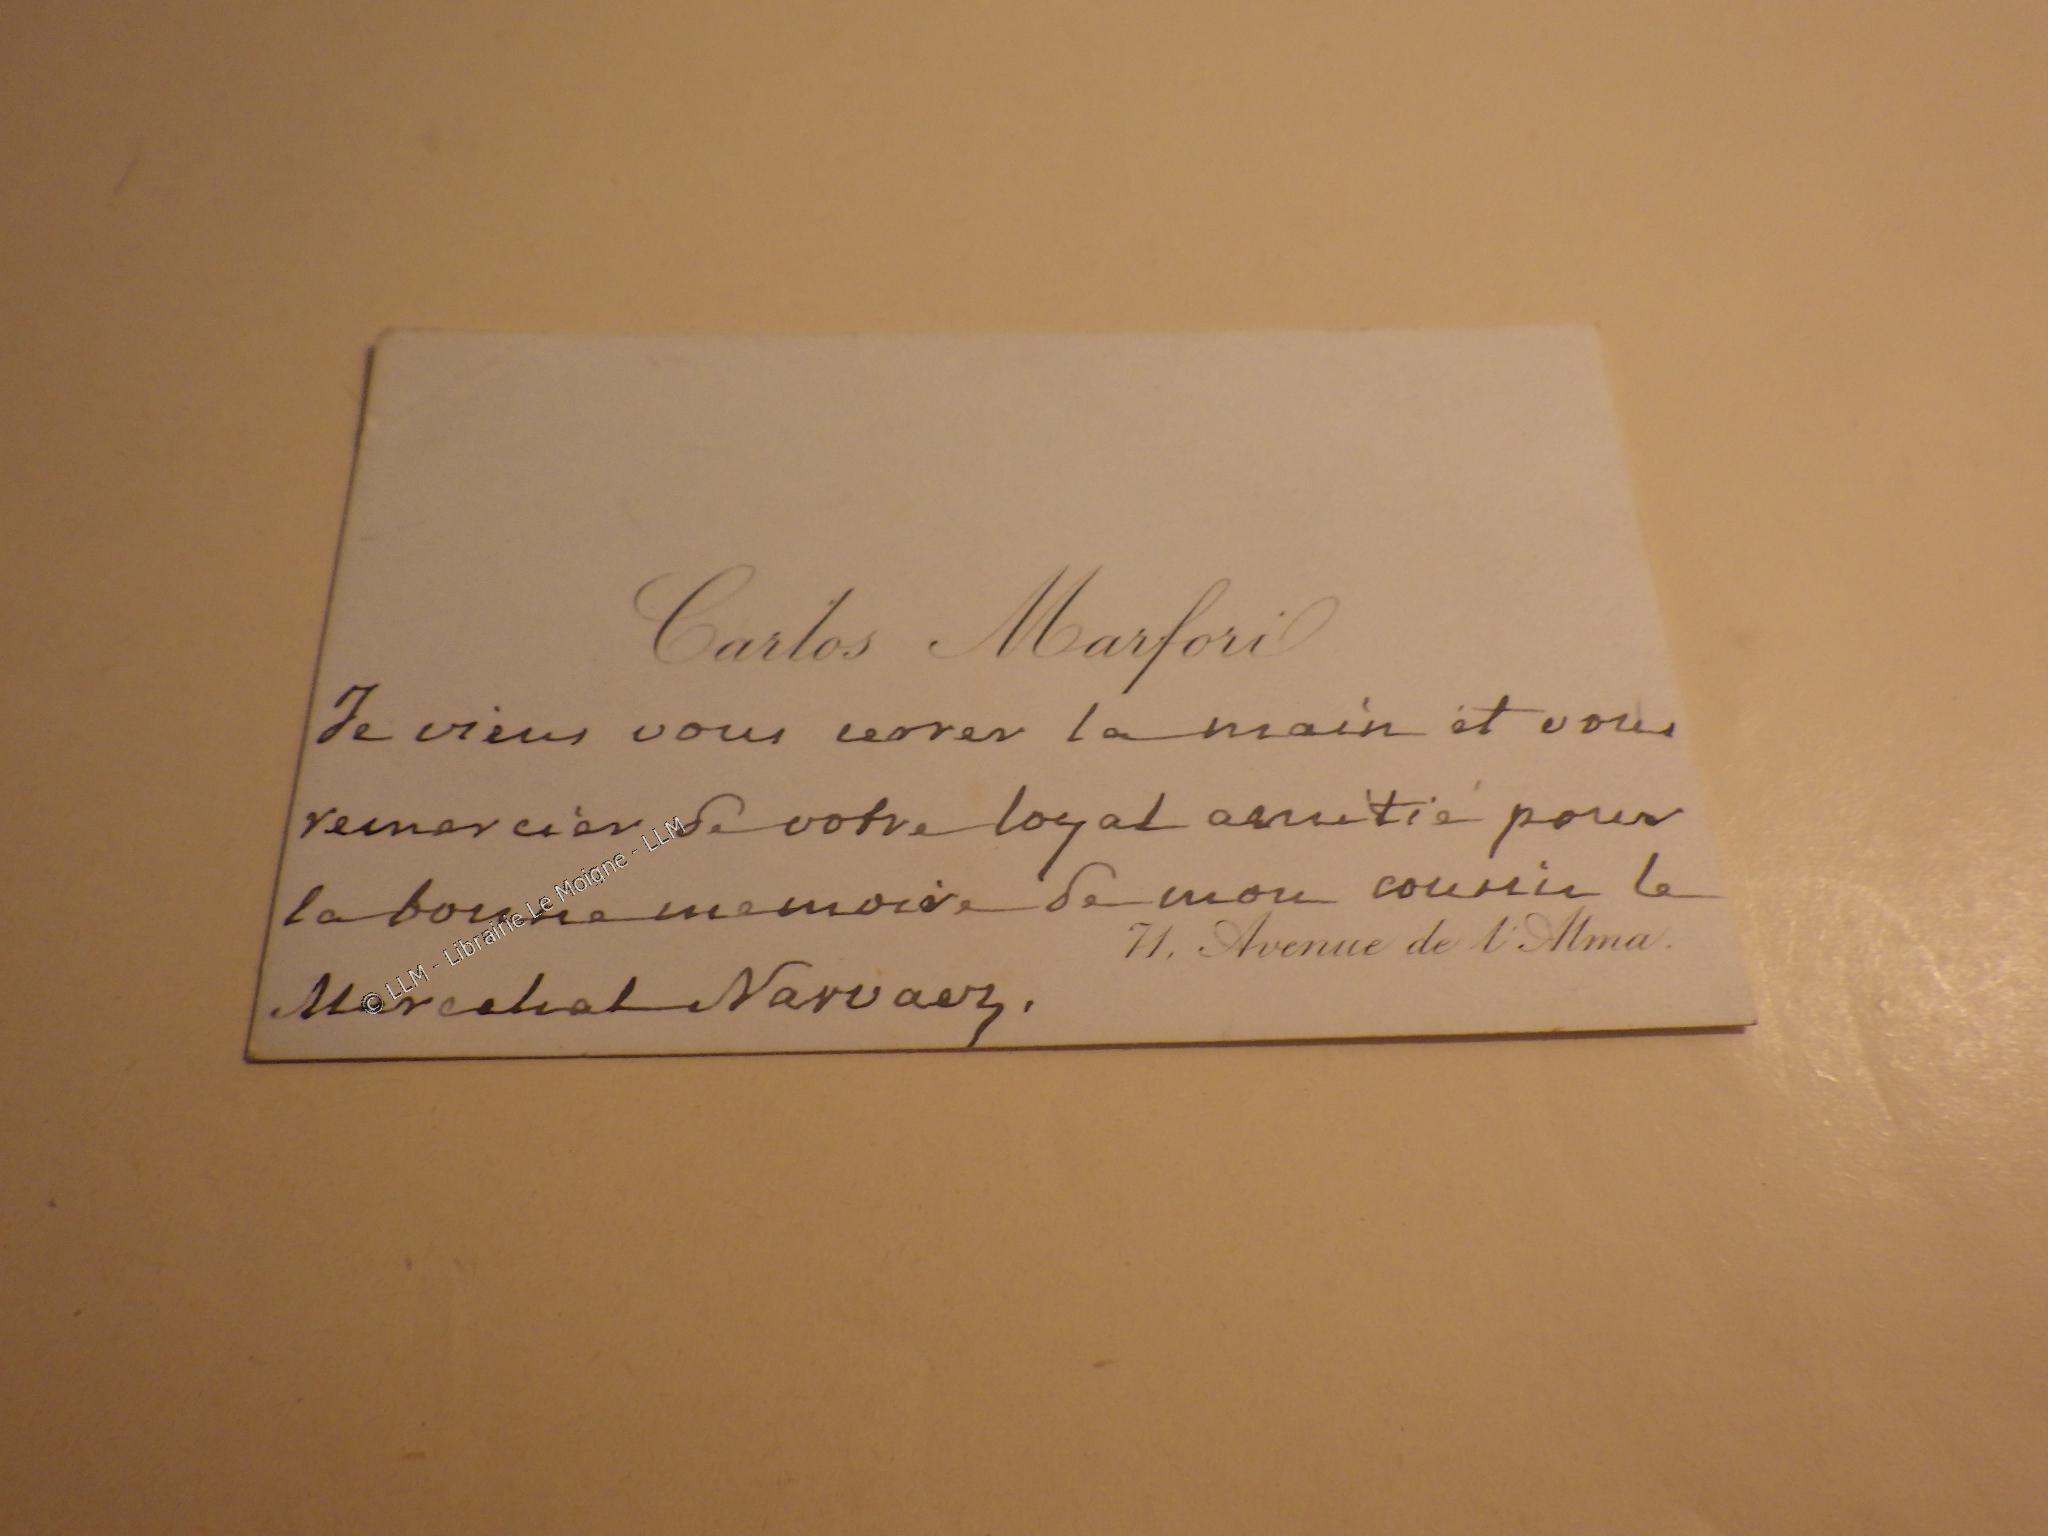 Carlos Marfori
Je viens vous serrer la main et vous
remercier de votre loyal amitié pour
la bonne memoire de mon cousin le
71, Avenue de l'Alma.
Marechal Narvaez.
© LLM - Librairie Le Moigne - LLM